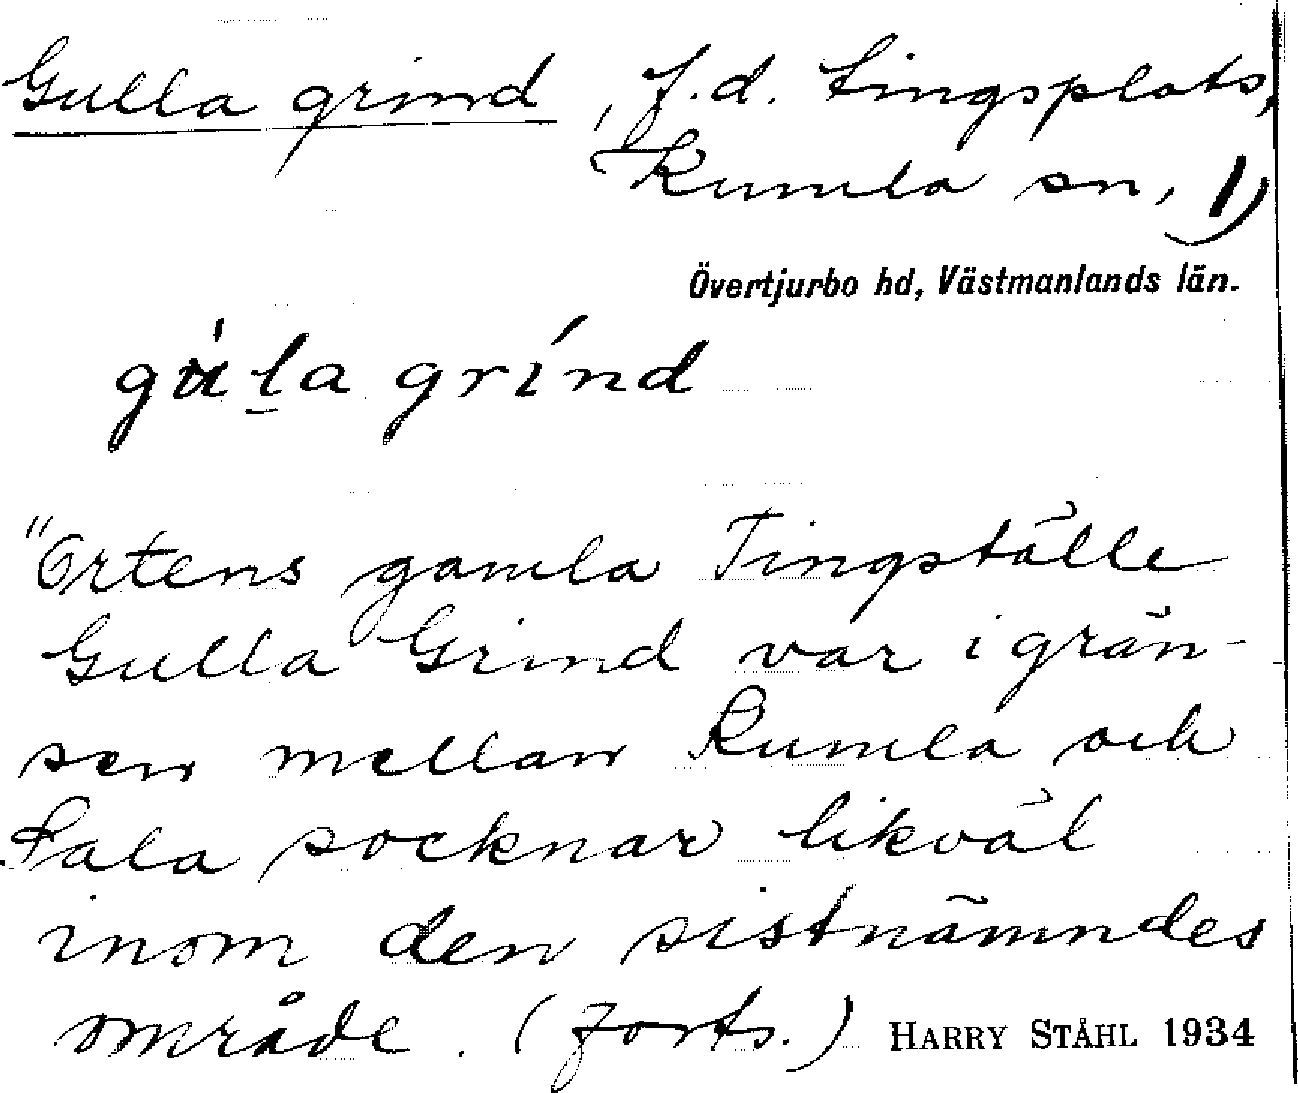 Gulla grind, f.d. tingsplats,
Kumla sn, 1)
Övertjurbo hd, Västmanlands län.
gù̀l̠a grínd
"Ortens gamla Tingställe
Gulla Grind var i grän-
sen mellan Kumla och
Sala socknar likväl
inom den sistnämndes
område. (forts.) HARRY STÅHL 1934